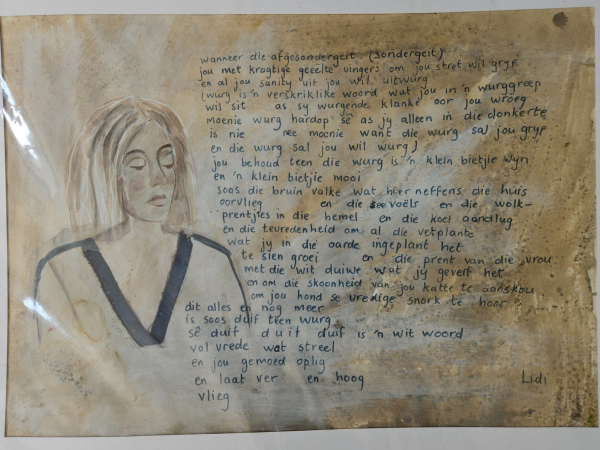 wanneer die afgesondergeit (sondergeit)
jou met kragtige geelte vingers om jou stret wil gryp
en al jou sanity uit jou wil uitwurg
(wurg is 'n verskriklike woord wat jou in 'n wurggreep
wil sit as sy wurgende klanke oor jou wroeg
moenie wurg hardop sê as jy alleen in die donkerte
is nie nee moenie want die wurg sal jou gryp
en die wurg sal jou wil wurg)
jou behoud teen die wurg is 'n klein bietjie wyn
en 'n klein bietjie mooi
soos die bruin valke wat hier neffens die huis
oorvlieg en die seevoëls en die wolk-
prentjies in die hemel en die koel aandlug
en die tevredenheid om al die vetplante
wat jy in die aarde ingeplant het
te sien groei en die prent van die vrou
met die wit duiwe wat jy geverf het
en om die skoonheid van jou katte te aanskou
om jou hond se vredige snork te hoor
dit alles en nog meer
is soos duif teen wurg
sê duif duif duif is 'n wit woord
vol vrede wat streel
en jou gemoed oplig
en laat ver en hoog
vlieg
Lidi